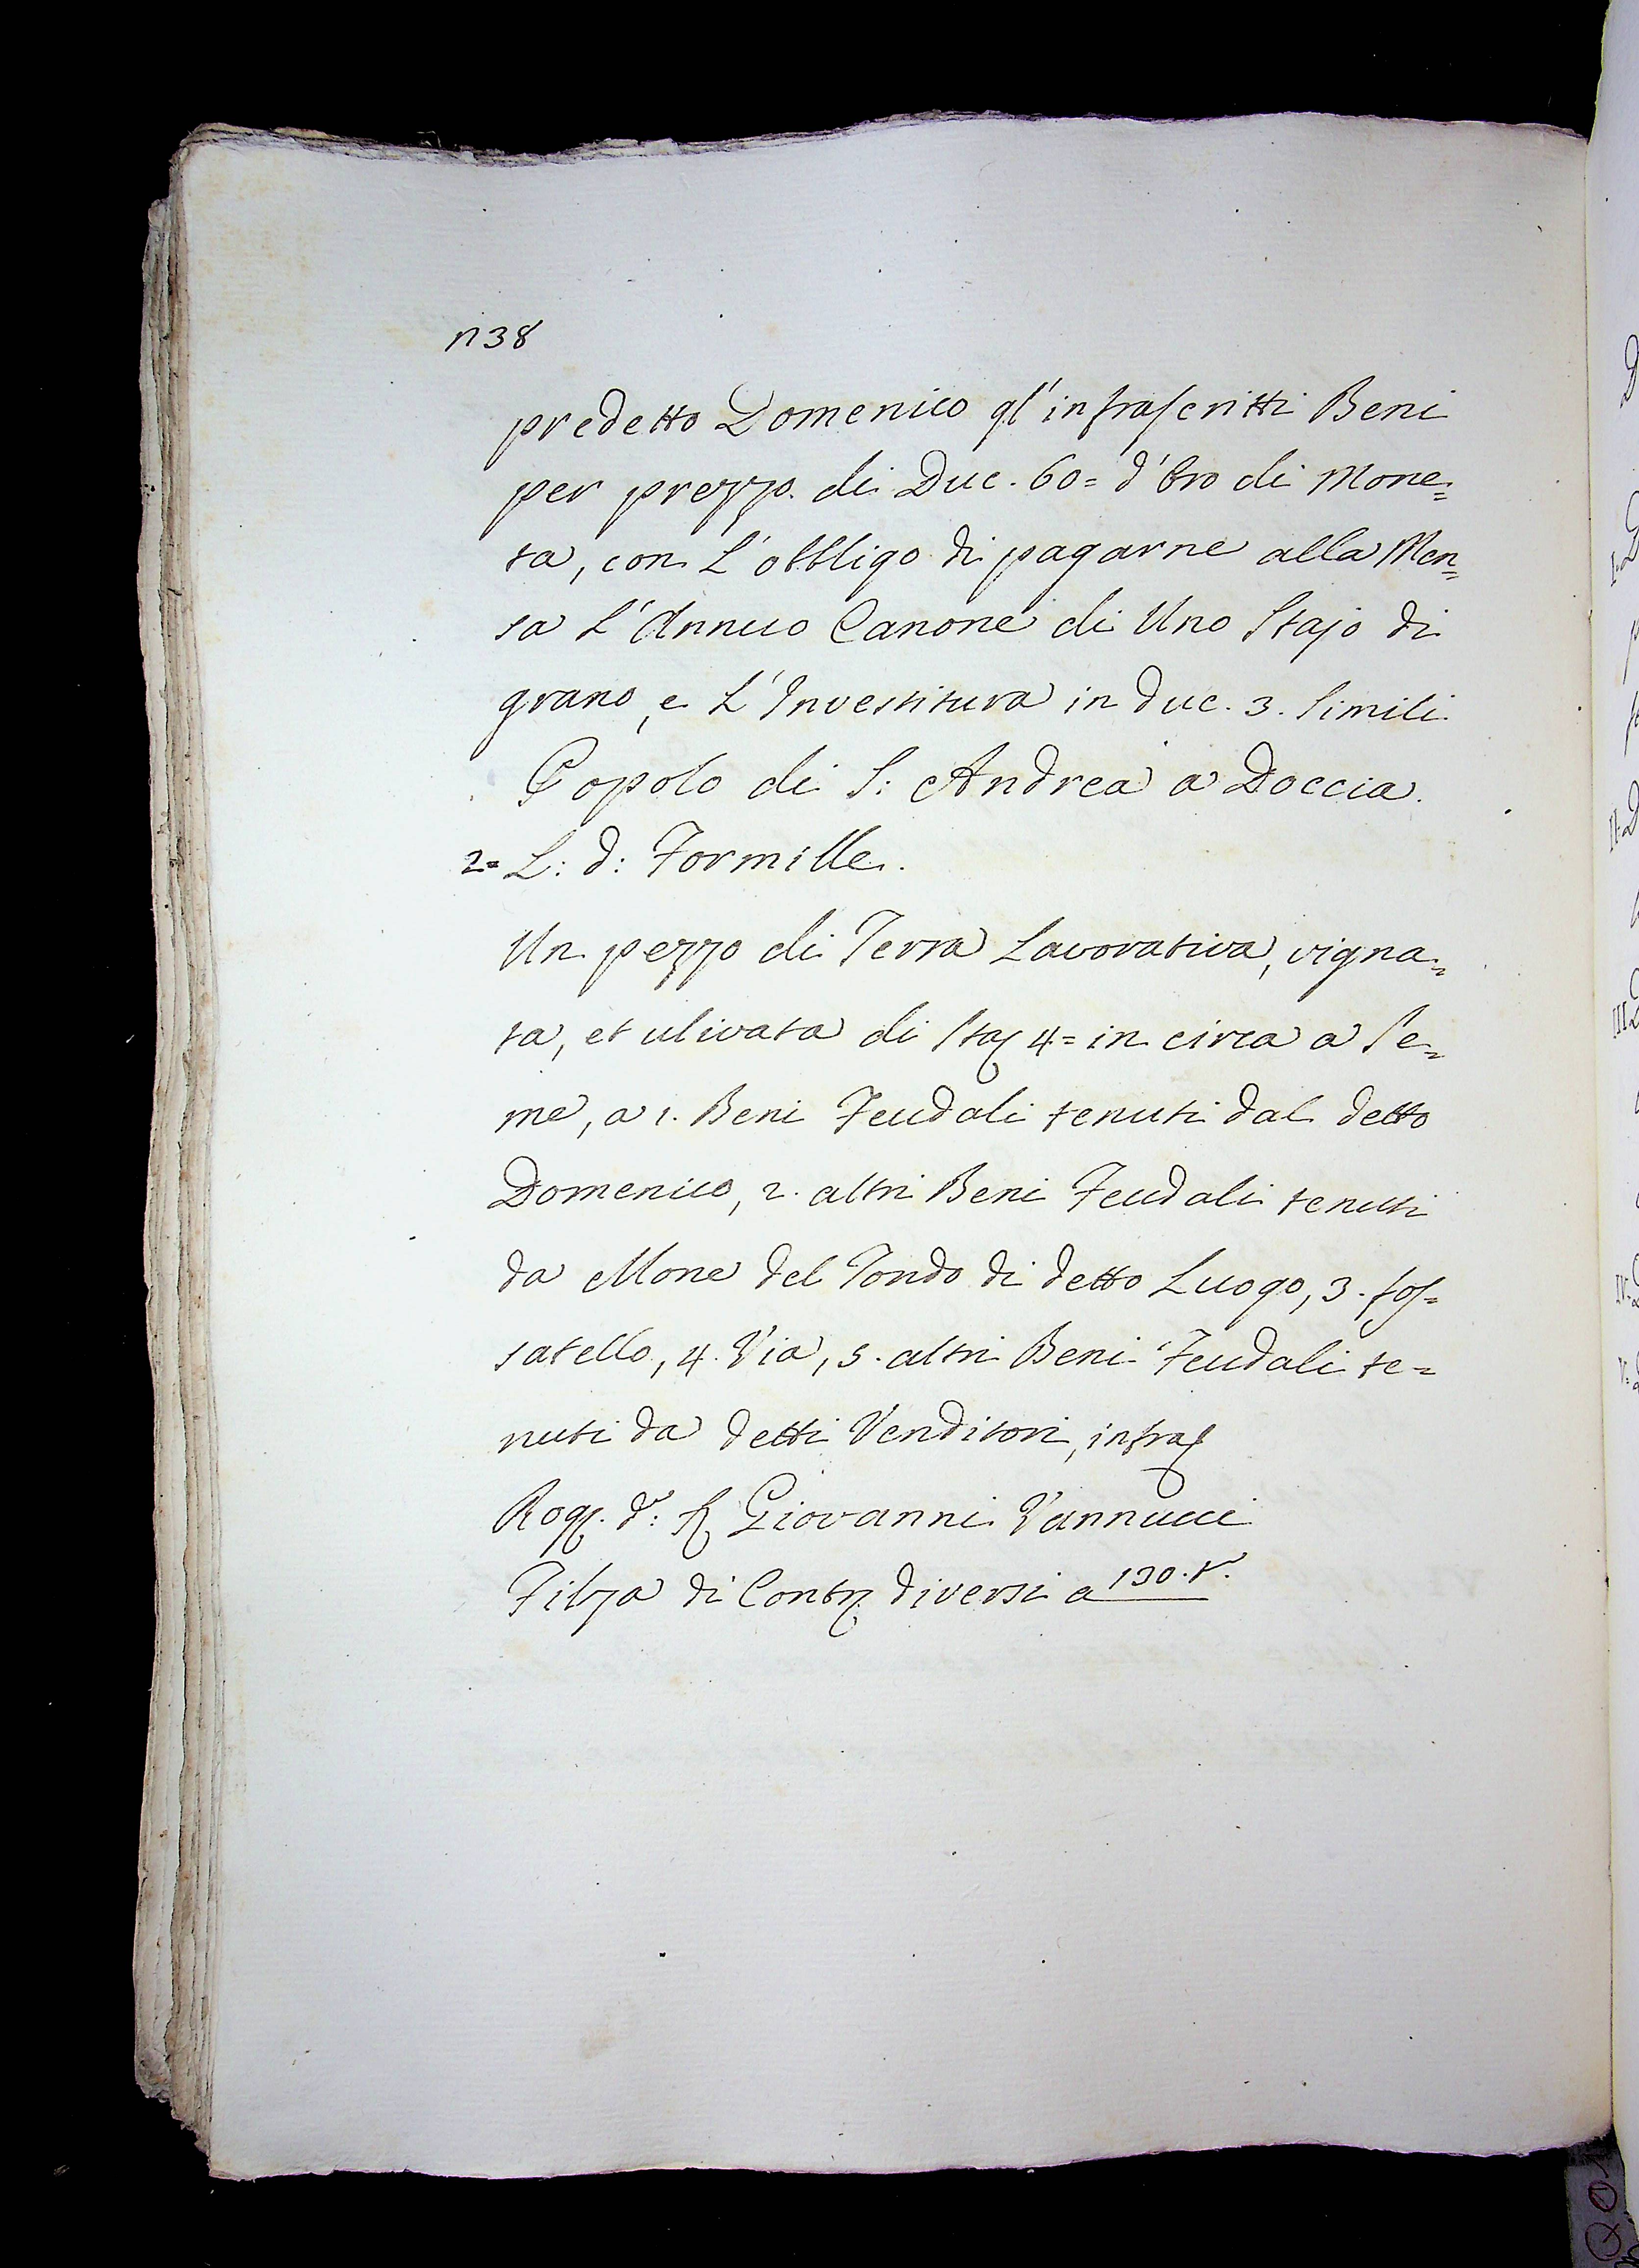 n 38
predetto Domenico gl'infrascritti Beni
per prezzo di Duc. 60= d'Oro di Mone=
ta, con L'obbligo di pagarne alla Men=
sa L'Annuo Canone di Uno Stajo di
grano, e L'Investitura in Duc. 3. Simili
Popolo di S: Andrea a Doccia.
2= L: d: Formille.
Un pezzo di Terra Lavorativa, vigna=
ta, et ulivata di Staj 4= in circa a Se=
me, a 1. Beni Feudali tenuti dal detto
Domenico, 2. altri Beni Feudali tenuti
da Mone del Tondo di detto Luogo, 3. fos=
satello, 4. Via, 5. altri Beni Feudali te=
nuti da detti Venditori, infras
Rog. d: Giovanni Vannucci
Filza di Contr diversi a 130. r.